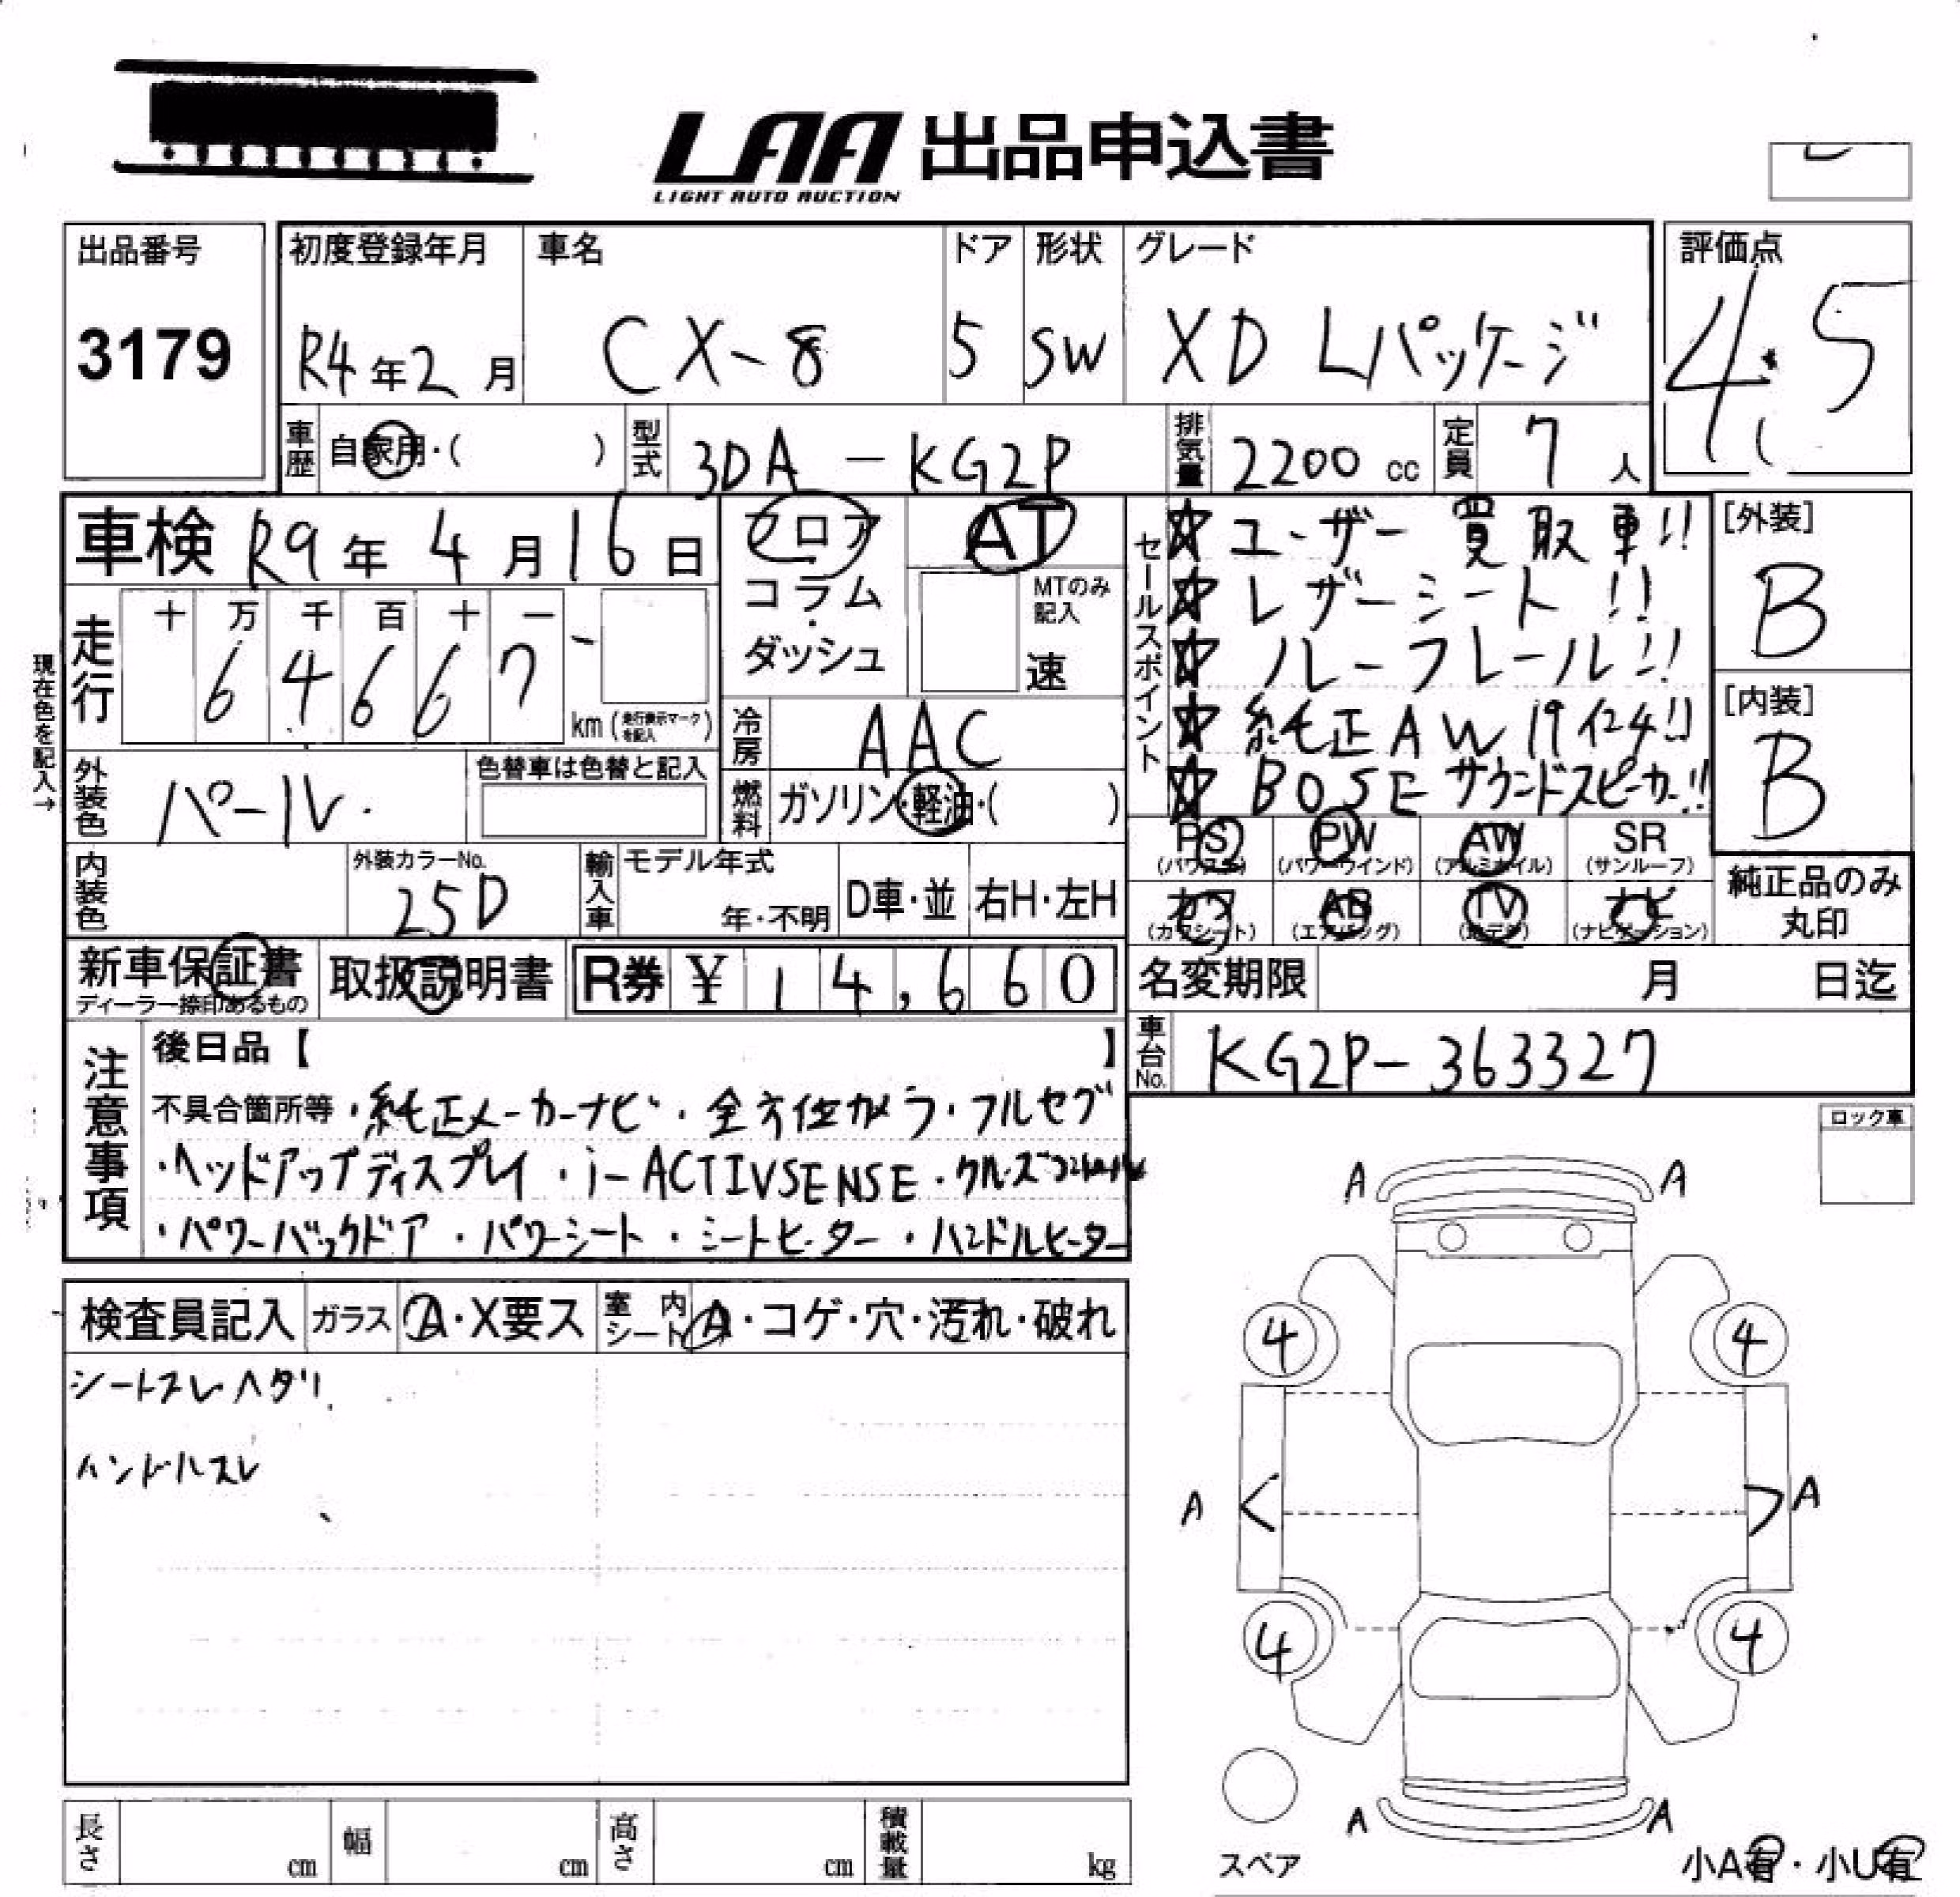 LAA 出品申込書
LIGHT AUTO AUCTION
出品番号
3179
初度登録年月
R4年2月
車名
CX-8
ドア
5
形状
SW
グレード
XD Lパッケージ
評価点
4.5
車歴 自家用・( )
型式 3DA-KG2P
排気量 2200 cc
定員 7人
車検 R9年4月16日
フロア・コラム・ダッシュ
AT
MTのみ記入
速
現在色を記入→
走行
十 万 千 百 十 一
6 4 6 6 7
km (走行表示マークを記入)
冷房 AAC
燃料 ガソリン・軽油・( )
外装色 パール
色替車は色替と記入
内装色
外装カラーNo.
25D
輸入車 モデル年式
年・不明
D車・並
右H・左H
セールスポイント
☆ユーザー買取車!!
☆レザーシート!!
☆ルーフレール!!
☆純正AW19インチ!!
☆BOSEサウンドスピーカー!!
[外装]
B
[内装]
B
PS (パワステ) PW (パワーウインド) AW (アルミホイル) SR (サンルーフ)
カワ (カワシート) AB (エアバッグ) TV (地デジ) ナビ (ナビゲーション)
純正品のみ丸印
新車保証書
ディーラー捺印あるもの
取扱説明書
R券 ¥14,660
名変期限 月 日迄
車台No. KG2P-363327
注意事項
後日品【 】
不具合箇所等・純正メーカーナビ・全方位カメラ・フルセグ
・ヘッドアップディスプレイ・i-ACTIVSENSE・クルーズコントロール
・パワーバックドア・パワーシート・シートヒーター・ハンドルヒーター
ロック車
検査員記入 ガラス A・X要ス 室内シート A・コゲ・穴・汚れ・破れ
シートスレ ヘタリ
ハンドルスレ
A A
4 4
A A
4 4
A A
スペア
小A有・小U有
長さ cm 幅 cm 高さ cm 積載量 kg